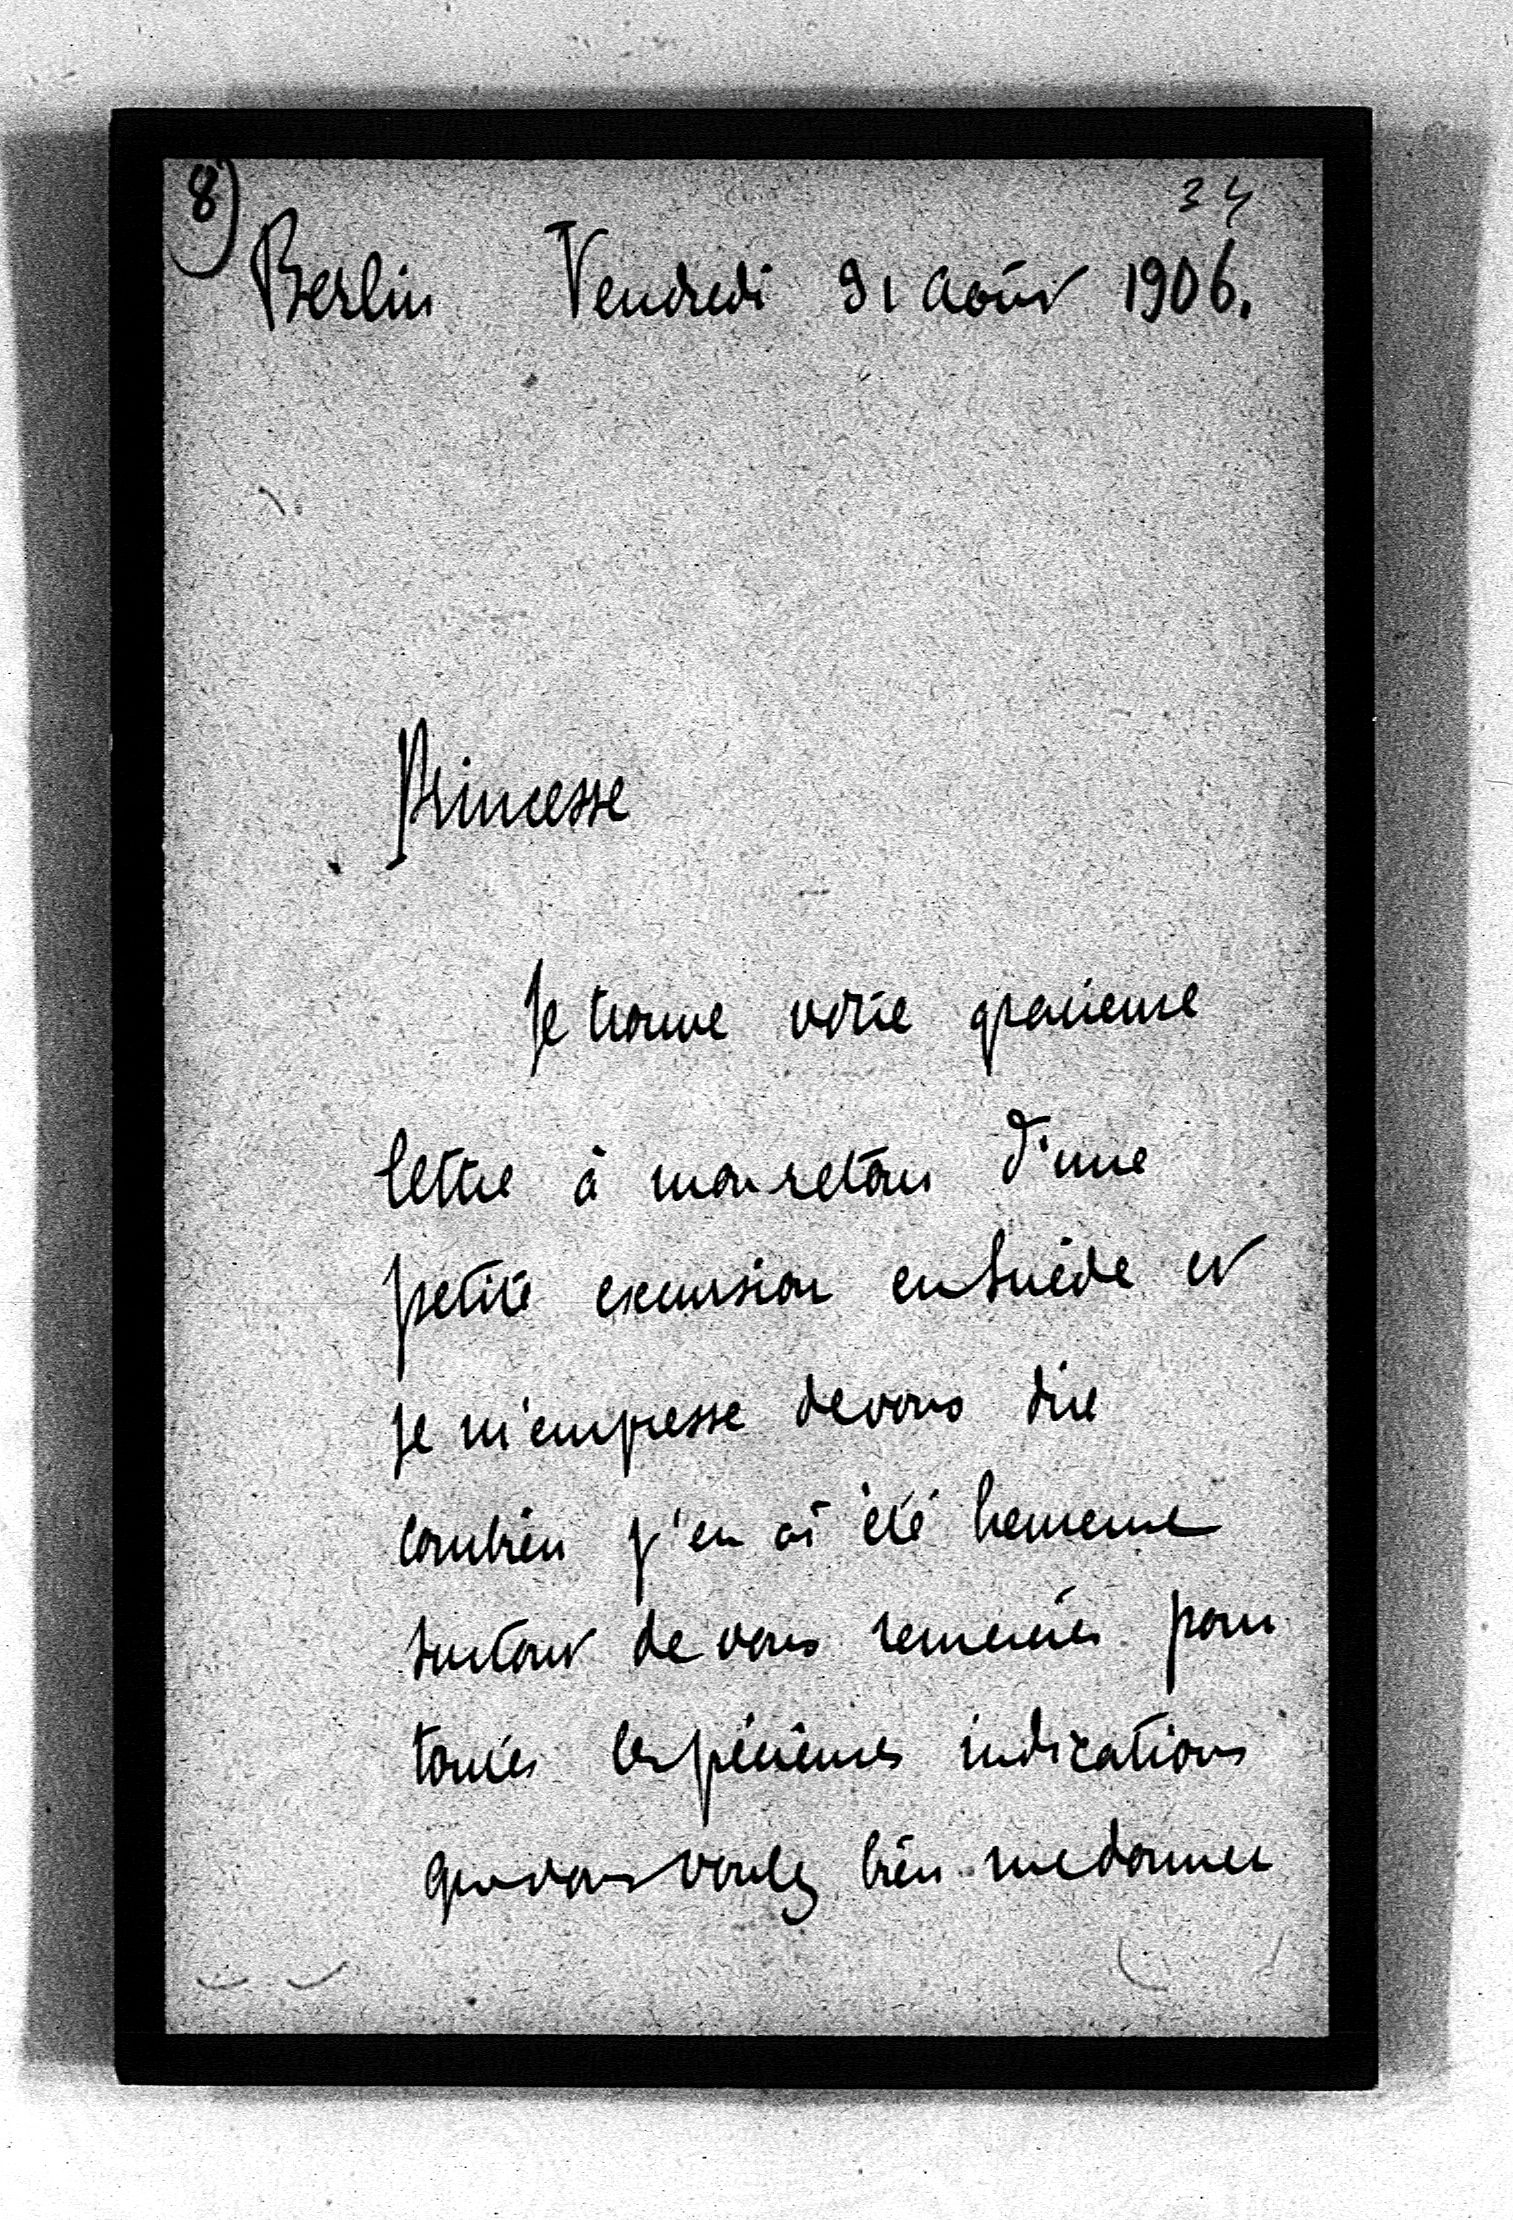 8)
34
Berlin Vendredi 31 Août 1906.
Princesse
Je trouve votre gracieuse
lettre à mon retour d'une
petite excursion en Suède et
je m'empresse de vous dire
combien j'en ai été heureuse
surtout de vous remercier pour
toutes les précieuses indications
que vous voulez bien me donner